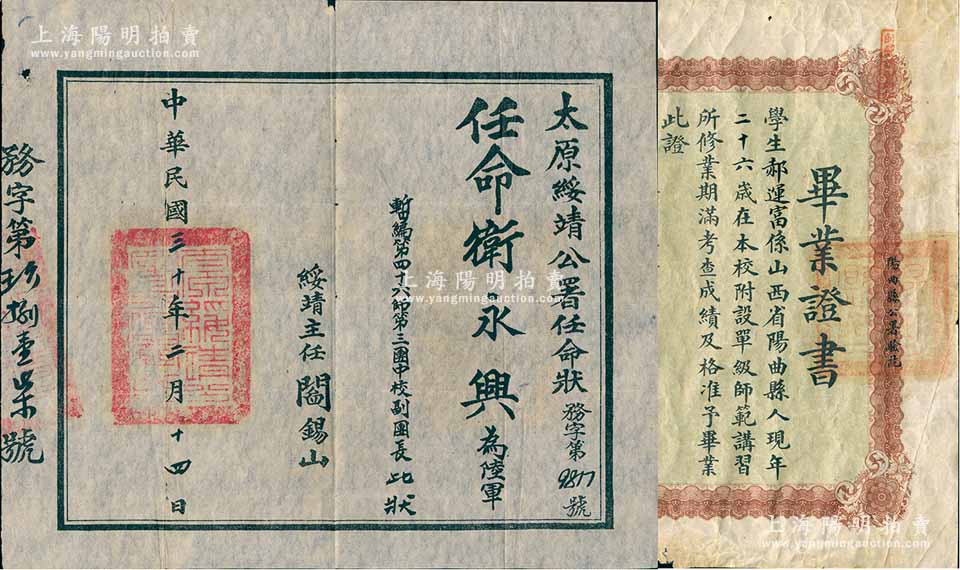 上海陽明拍賣
www.yangmingauction.com
太原綏靖公署任命狀 務字第9817號
任命衛永興為陸軍
暫編第四十六師第三團中校副團長 此狀
綏靖主任 閻錫山
中華民國三十年二月二十四日
務字第玖捌壹柒號
上海陽明拍賣
www.yangmingauction.com
陽曲縣公署驗訖
畢業證書
學生郝運富係山西省陽曲縣人現年
二十六歲在本校附設單級師範講習
所修業期滿考查成績及格准予畢業
此證
上海陽明拍賣
www.yangmingauction.com
上海陽明拍賣
www.yangmingauction.com